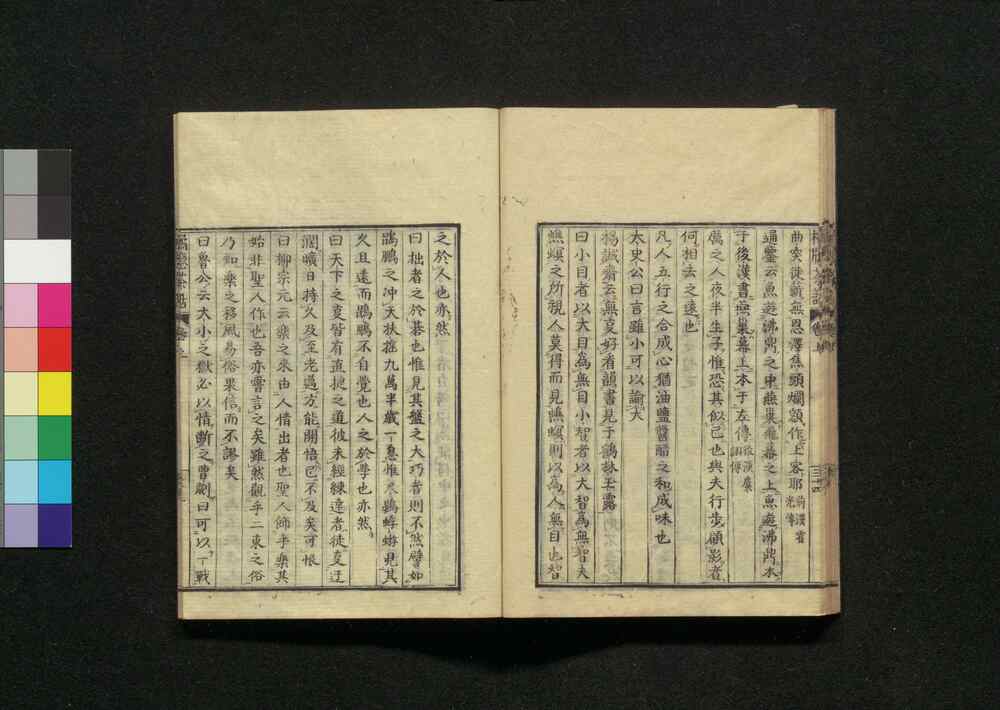 曲突徙薪無恩澤焦頭爛額作上客耶前漢書
通鑒云魚遊沸鼎之中燕巢飛幕之上魚遊沸鼎本
于後漢書燕巢幕上本于左傳
厲之人夜半生子惟恐其似己也與夫行步顧影者
何相去之遠也
凡人五行之合成心猶油鹽醬醋之和成味也
太史公曰言雖小可以諭大
楊誠齋云無夏好看韻書見于鶴林玉露
曰小目者以大目為無目小智者以大智為無智夫
蟭螟之所視人莫得而見蟭螟則以為人無目也智
之於人也亦然
曰拙者之於碁也惟見其盤之大巧者則不然譬如
鵾鵬之冲天扶搖九萬半歲一息惟凡鷃蜉蝣見其
久且遠而鵾鵬不自覺也人之於學也亦然
曰天下之支皆有直捷之道彼未經練達者徒支迂
濶曠日持久及至老邁方能開悟已不及矣可恨
曰柳宗元云樂之來由人情出者也聖人飾乎樂其
始非聖人作也吾亦嘗言之矣雖然觀乎二東之俗
乃知樂之移風易俗果信而不謬矣
曰魯公云大小之獄必以情斷之曹劌曰可以一戰